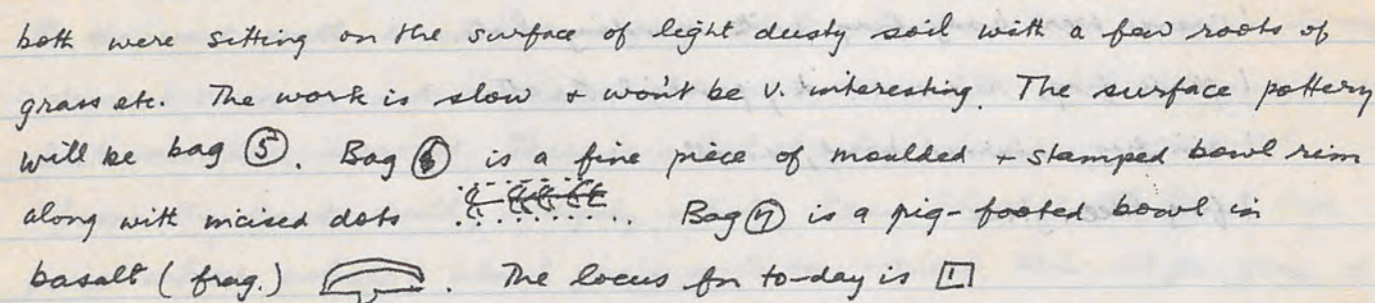 both were sitting on the surface of light dusty soil with a few roots of
grass etc. The work is slow + won't be v. interesting. The surface pottery
will be bag ⑤. Bag ⑥ is a fine piece of moulded + stamped bowl rim
along with incised dots . Bag ⑦ is a pig-footed bowl in
basalt (frag.) . The locus for to-day is 1